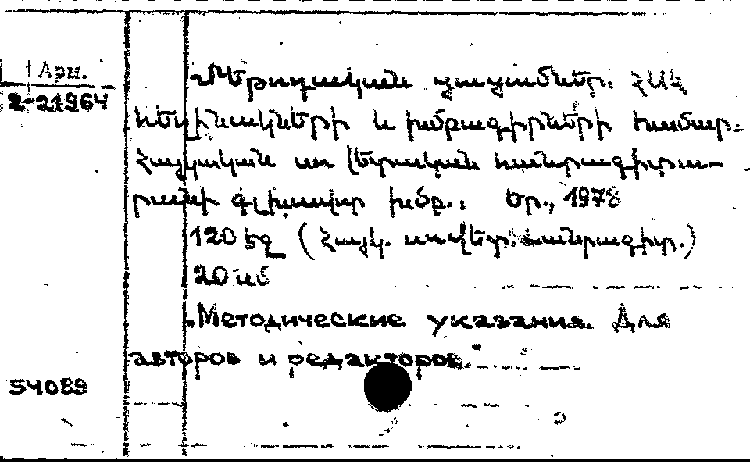 Арм.
2-21964
Մեթոդական ցուցումներ. ՀՍՀ
հեղինակների և խմբագիրների համար:
Հայկական սով. հանրագիտա-
րանի գլխավոր խմբ.: Եր., 1978
120 էջ (Հայկ. սովետ. հանրագիտ.)
20 սմ
"Методические указания для
авторов и редакторов."
54089